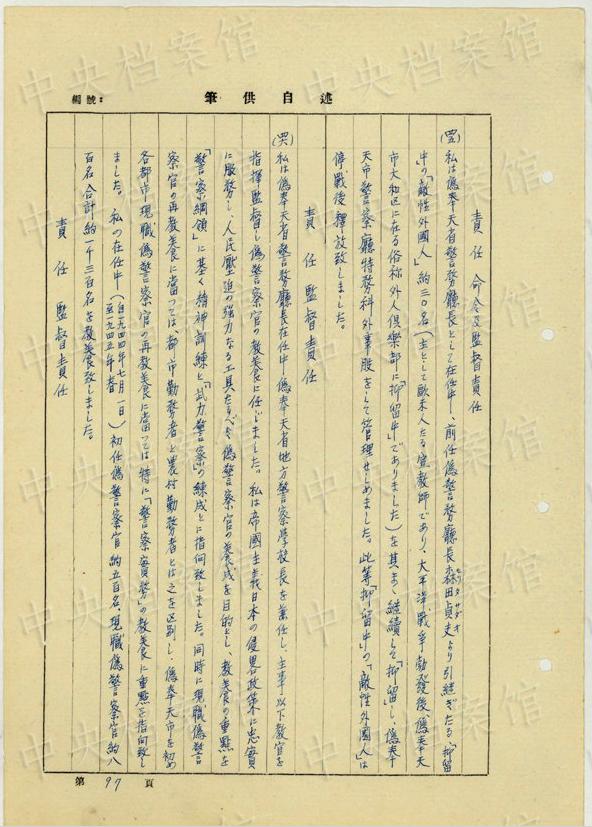 編號:
筆供自述
責任 命令及監督責任
(四五)私は偽奉天省警務廳長として在任中、前任偽警務廳長森田貞夫より引継ぎたる「抑留
中の「敵性外國人」約三〇名(主として欧米人たる宣教師であり、太平洋戰爭勃發後偽奉天
市大和区に在る俗称外人俱樂部に「抑留中」でありました)を其まゝ継続して「抑留」し、偽奉
天市警察廳特務科外事股をして管理せしめました。此等「抑留中」の「敵性外國人」は
停戰後釋放致しました。
責任 監督責任
(四六)私は偽奉天省警務廳長在任中偽奉天省地方警察学校長を兼任し、主事以下教官を
指揮監督し偽警察官の教養に任じました。私は帝國主義日本の侵畧政策に忠實
に服務し、人民壓迫の強力なる工具たるべき偽警察官の養成を目的とし、教養の重點を
「警察綱領」に基く精神訓練と「武力警察」の練成とに指向致しました。同時に現職偽警
察官の再教養に當つては、都市勤務者と農村勤務者とは之を区別し、偽奉天市を初め
各都市現職偽警察官の再教養に當つては特に「警察實務」の教養に重點を指向致し
ました。私の在任中(自一九四四年七月一日至一九四五年)初任偽警察官約五百名、現職偽警察官約八
百名合計約一千三百名を教養致しました。
責任 監督責任
第 97 頁
中央档案馆